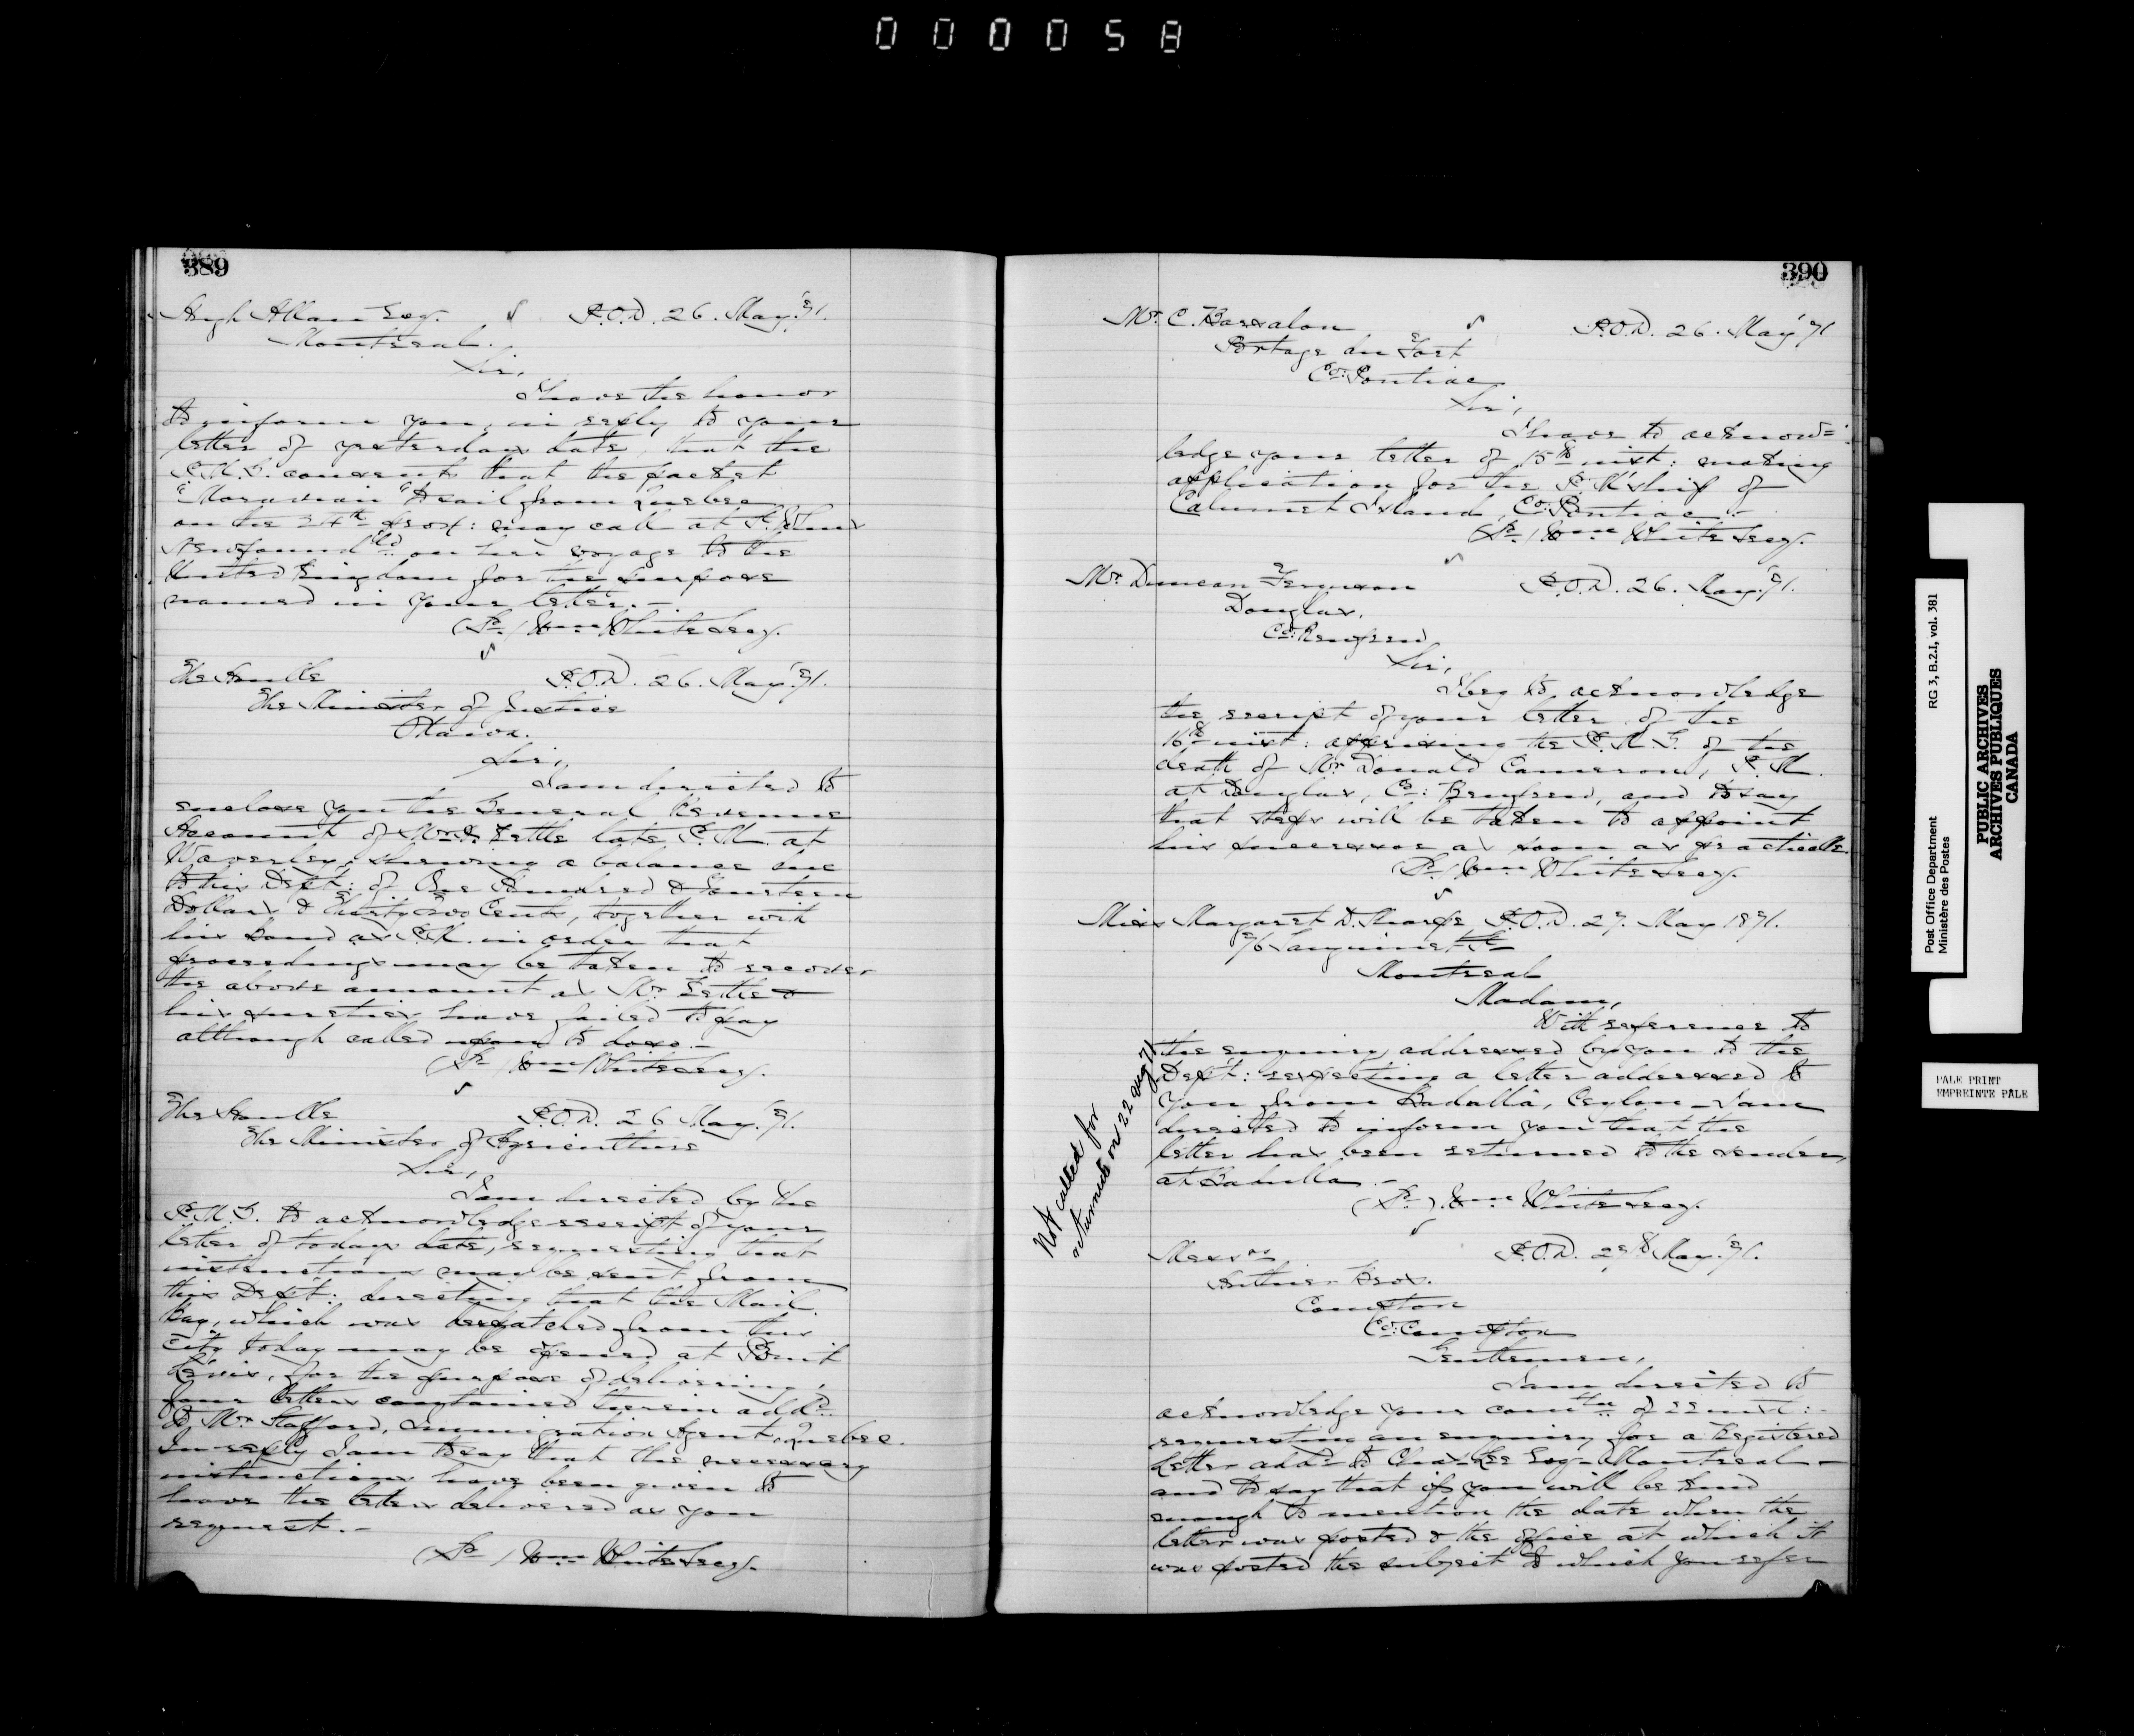 000058
389
Hugh Allan Esq. P.O.D. 26. May '71.
Montreal.
Sir,
I have the honor
to inform you, in reply to your
letter of yesterday's date, that the
P.M.G. consents that the packet
"Moravian" to sail from Quebec
on the 24th prox: may call at St. John's
Newfoundld. on her voyage to the
United Kingdom for the purpose
named in your letter.—
(Sd.) Wm White Secy.
The Honble P.O.D. 26. May '71.
The Minister of Justice
Ottawa.
Sir,
I am directed to
enclose you the General Revenue
Account of Mr. Settle late P.M. at
Waverley, showing a balance due
to this Dept: of One Hundred & Fourteen
Dollars & Thirty Two Cents, together with
his bond as P.M. in order that
proceedings may be taken to recover
the above amount as Mr. Settle &
his sureties have failed to pay
although called upon to do so.—
(Sd) Wm White Secy.
The Honble P.O.D. 26 May '71.
The Minister of Agriculture
Sir,
I am directed by the
P.M.G. to acknowledge receipt of your
letter of today's date, requesting that
instructions may be sent from
this Dept: directing that the Mail
Bag, which was despatched from this
City today may be opened at Point
Levis, for the purpose of delivering
four letters contained therein addd.
to Mr Stafford, Immigration Agent, Quebec.
In reply I am to say that the necessary
instructions have been given to
have the letters delivered as you
request.—
(Sd) Wm White Secy.
390
Mr. C. P.O.D. 26. May '71
Portage du Fort
Co: Pontiac
Sir,
I have to acknow=
ledge your letter of 15th inst: making
application for the P.M'ship of
Calumet Island, Co: Pontiac.—
(Sd.) Wm White Secy.
Mr. Duncan Ferguson P.O.D. 26. May '71.
Douglas,
Co: Renfrew
Sir,
I beg to acknowledge
the receipt of your letter of the
16th inst: apprising the P.M.G. of the
death of Mr Donald Cameron, P.M.
at Douglas, Co: Renfrew, and to say
that steps will be taken to appoint
his successor as soon as practicable.
(Sd) Wm White Secy.
Miss Margaret D. Sharpe P.O.D. 27. May 1871.
76 Sanguinet St
Montreal
Madam,
With reference to
the enquiry addressed by you to the
Dept: respecting a letter addressed to
you from Badulla, Ceylon — I am
directed to inform you that the
letter has been returned to the sender
at Badulla.—
(Sd.) Wm White Secy.
Not called for
returned on 22 Aug 71
Messrs P.O.D. 27th May '71.
Bros.
Compton
Co: Compton
Gentlemen,
I am directed to
acknowledge your comtn. of inst:-
requesting an enquiry for a Registered
Letter addd. to Chas. Lee Esq - Montreal —
and to say that if you will be kind
enough to mention the date when the
letter was posted & the office at which it
was posted the subject to which you refer
Post Office Department RG 3, B.2.I, vol. 381
Ministère des Postes
PUBLIC ARCHIVES
ARCHIVES PUBLIQUES
CANADA
PALE PRINT
EMPREINTE PALE